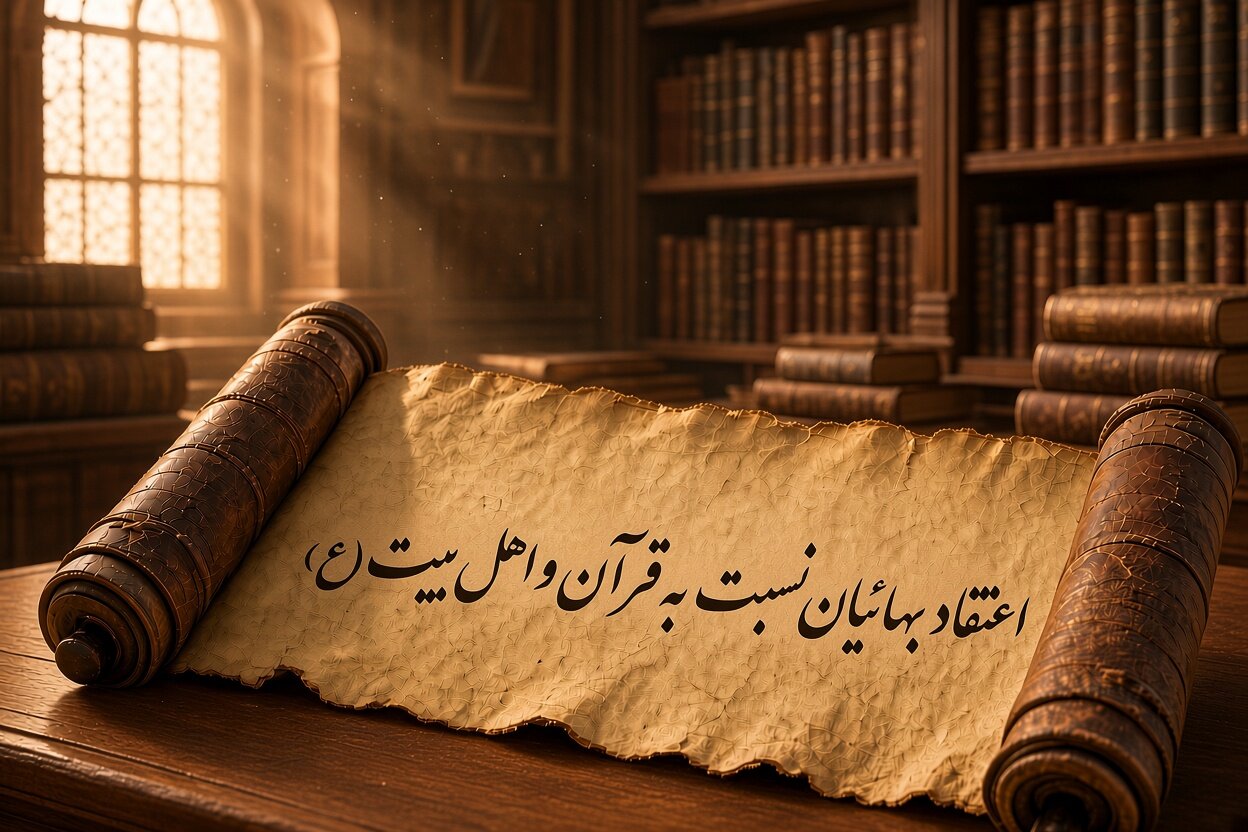 اعتقاد بهائیان نسبت به قرآن و اهل بیت (ع)